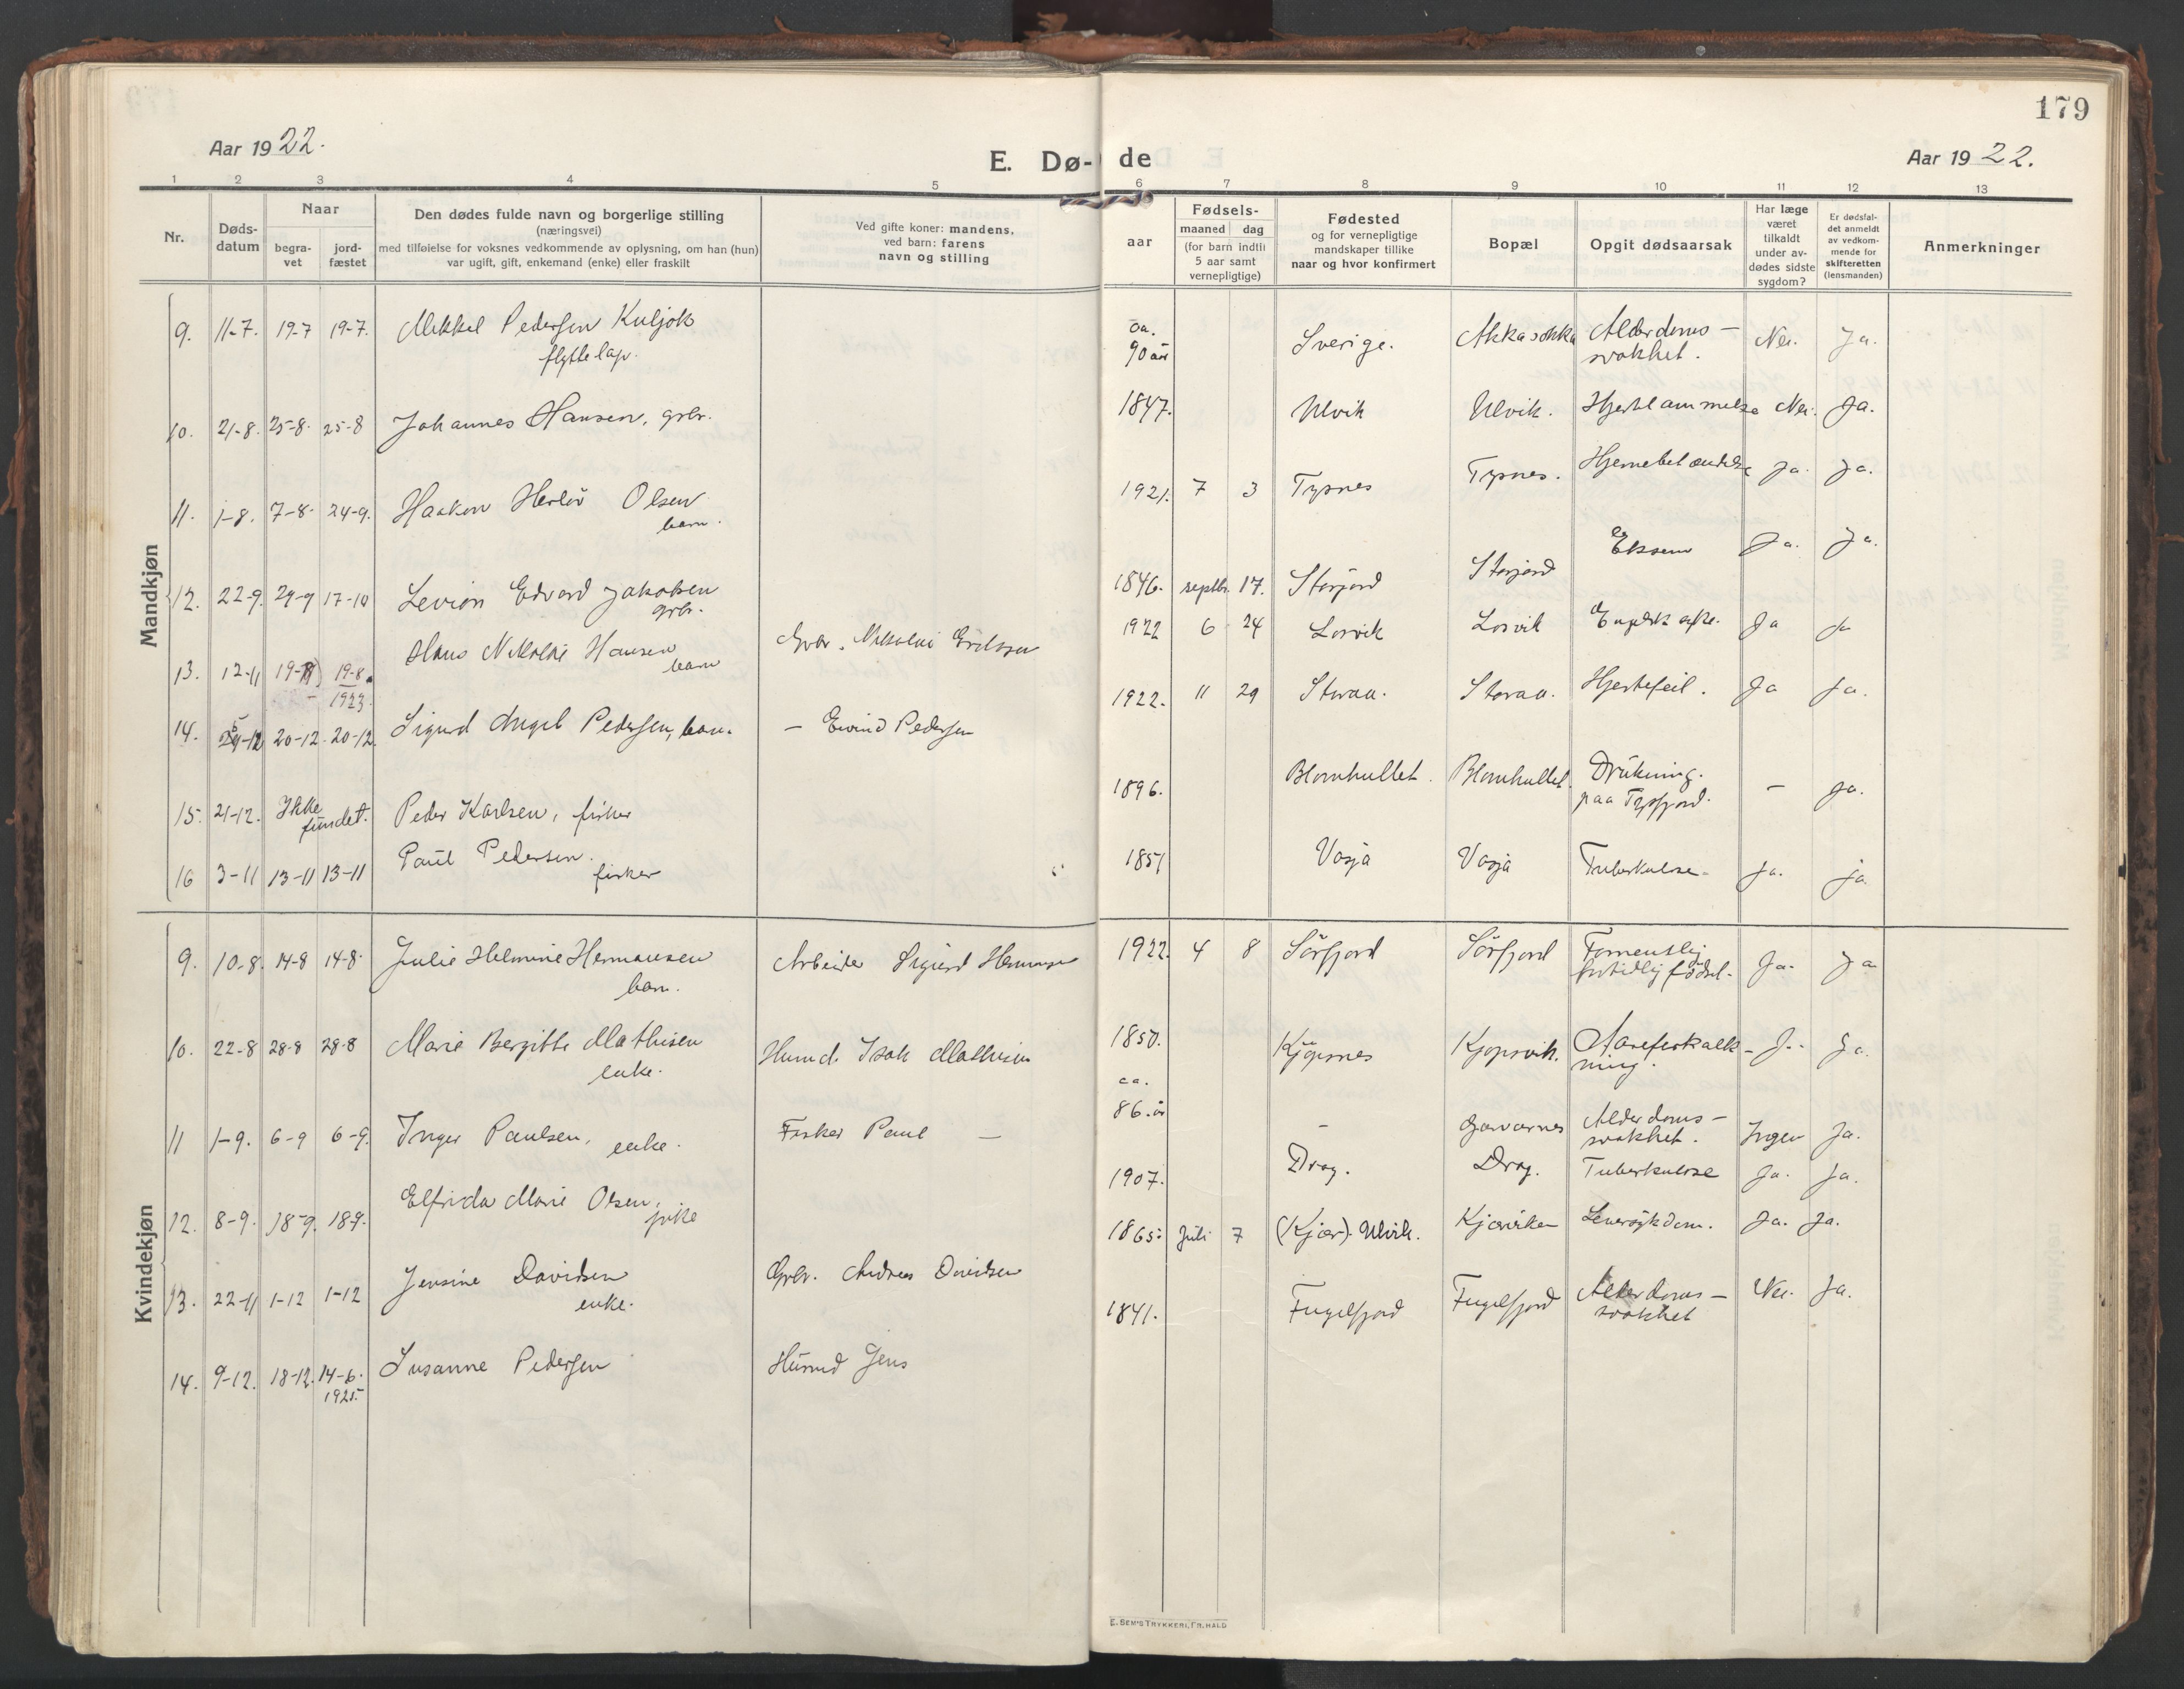 179
Aar 1922.
E. Dø-
de
Aar 1922.
1 2 3 4 5 6 7 8 9 10 11 12 13
Nr.
Døds-
datum
Naar
begra-
vet
jord-
fæstet
Den dødes fulde navn og borgerlige stilling
(næringsvei)
med tilføielse for voksnes vedkommende av oplysning, om han (hun)
var ugift, gift, enkemand (enke) eller fraskilt
Ved gifte koner: mandens,
ved barn: farens
navn og stilling
aar
Fødsels-
maaned dag
(for barn indtil
5 aar samt
vernepligtige)
Fødested
og for vernepligtige
mandskaper tillike
naar og hvor konfirmert
Bopæl
Opgit dødsaarsak
Har læge
været
tilkaldt
under av-
dødes sidste
sygdom?
Er dødsfal-
det anmeldt
av vedkom-
mende for
skifteretten
(lensmanden)
Anmerkninger
Mandkjøn
9. 11-7. 19-7 19-7. Mikkel Pedersen Kuljok
flyttelap.
ca.
90 år Sverige. Akkasokka Alderdoms-
svakhet. Nei. Ja.
10. 21-8. 25-8. 25-8 Johannes Hansen, grbr.
1847. Ulvik Ulvik. Hjertelammelse Nei. Ja.
11. 1-8. 7-8. 24-9. Haakon Herlöv Olsen
barn.
1921. 7 3 Tysnes Tysnes. Hjernebetændelse Ja. Ja.
12. 22-9. 29-9 17-10 Levion Edvard Jakobsen
grbr.
1846. septbr. 17. Storjord Storjord Eksem Ja. Ja.
13. 12-11 19-8 19-8
1923. Hans Nikolai Hansen
barn Grbr. Nikolai Eriksen
1922 6 24 Losvik Losvik Ja Ja
14. 20-12 20-12. Sigurd Angel Pedersen, barn. – Eivind Pedersen
1922. 11 29 Storaa. Storaa. Hjertefeil. Ja Ja.
15. 21-12. Ikke
fundet. Peder Karlsen, fisker
1896. Blomhullet. Blomhullet. Drukning.
paa Tysfjord. – Ja.
16 3-11 13-11 13-11 Paul Pedersen.
fisker
1851 Vasja Vasja Tuberkulose. Ja. ja
Kvindekjøn
9. 10-8. 14-8 14-8. Julie Helmine Hermansen
barn. Arbeider Sigurd Hermansen
1922. 4 8 Sörfjord Sörfjord Formentlig
fortidlig födsel. Ja. Ja
10. 22-8 28-8 28-8 Marie Bergitte Mathisen
enke. Husmd. Isak Mathisen
1850. Kjöpsnes Kjöpsvik. Aareforkalk-
ning. J. Ja.
11 1-9. 6-9 6-9. Inger Paulsen, enke. Fisker Paul –
ca.
86. år – Alderdoms-
svakhet. Ingen Ja.
12. 8-9. 18-9. 18-9. Elfrida Marie Olsen,
pike
1907. Drag. Drag. Tuberkulose Ja. Ja.
13. 22-11 1-12 1-12 Jensine Davidsen
enke. Grbr. Andreas Davidsen
1865. Juli 7 (Kjær). Ulvik. Kjærviken Leversykdom. Ja. Ja.
14. 9-12. 18-12. 14-6.
1925. Susanne Pedersen Husmd Jens
1841. Fuglefjord Fuglefjord Alderdoms-
svakhet Nei. Ja.
E. SEM'S TRYKKERI, FR.HALD